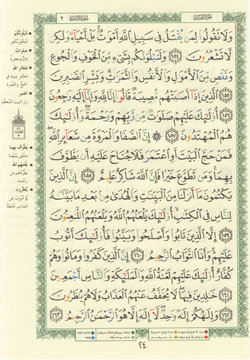 وَلَا تَقُولُوا۟ لِمَن يُقْتَلُ فِى سَبِيلِ ٱللَّهِ أَمْوَٰتٌۢ بَلْ أَحْيَآءٌ وَلَٰكِن
لَّا تَشْعُرُونَ ١٥٤ وَلَنَبْلُوَنَّكُم بِشَىْءٍ مِّنَ ٱلْخَوْفِ وَٱلْجُوعِ
وَنَقْصٍ مِّنَ ٱلْأَمْوَٰلِ وَٱلْأَنفُسِ وَٱلثَّمَرَٰتِ وَبَشِّرِ ٱلصَّٰبِرِينَ
١٥٥ ٱلَّذِينَ إِذَآ أَصَٰبَتْهُم مُّصِيبَةٌ قَالُوٓا۟ إِنَّا لِلَّهِ وَإِنَّآ إِلَيْهِ رَٰجِعُونَ
١٥٦ أُو۟لَٰٓئِكَ عَلَيْهِمْ صَلَوَٰتٌ مِّن رَّبِّهِمْ وَرَحْمَةٌ وَأُو۟لَٰٓئِكَ
هُمُ ٱلْمُهْتَدُونَ ١٥٧ إِنَّ ٱلصَّفَا وَٱلْمَرْوَةَ مِن شَعَآئِرِ ٱللَّهِ
فَمَنْ حَجَّ ٱلْبَيْتَ أَوِ ٱعْتَمَرَ فَلَا جُنَاحَ عَلَيْهِ أَن يَطَّوَّفَ
بِهِمَا وَمَن تَطَوَّعَ خَيْرًا فَإِنَّ ٱللَّهَ شَاكِرٌ عَلِيمٌ ١٥٨ إِنَّ ٱلَّذِينَ
يَكْتُمُونَ مَآ أَنزَلْنَا مِنَ ٱلْبَيِّنَٰتِ وَٱلْهُدَىٰ مِنۢ بَعْدِ مَا بَيَّنَّٰهُ
لِلنَّاسِ فِى ٱلْكِتَٰبِ أُو۟لَٰٓئِكَ يَلْعَنُهُمُ ٱللَّهُ وَيَلْعَنُهُمُ ٱللَّٰعِنُونَ
١٥٩ إِلَّا ٱلَّذِينَ تَابُوا۟ وَأَصْلَحُوا۟ وَبَيَّنُوا۟ فَأُو۟لَٰٓئِكَ أَتُوبُ
عَلَيْهِمْ وَأَنَا ٱلتَّوَّابُ ٱلرَّحِيمُ ١٦٠ إِنَّ ٱلَّذِينَ كَفَرُوا۟ وَمَاتُوا۟ وَهُمْ
كُفَّارٌ أُو۟لَٰٓئِكَ عَلَيْهِمْ لَعْنَةُ ٱللَّهِ وَٱلْمَلَٰٓئِكَةِ وَٱلنَّاسِ أَجْمَعِينَ
١٦١ خَٰلِدِينَ فِيهَا لَا يُخَفَّفُ عَنْهُمُ ٱلْعَذَابُ وَلَا هُمْ يُنظَرُونَ
١٦٢ وَإِلَٰهُكُمْ إِلَٰهٌ وَٰحِدٌ لَّآ إِلَٰهَ إِلَّا هُوَ ٱلرَّحْمَٰنُ ٱلرَّحِيمُ ١٦٣
٢٤